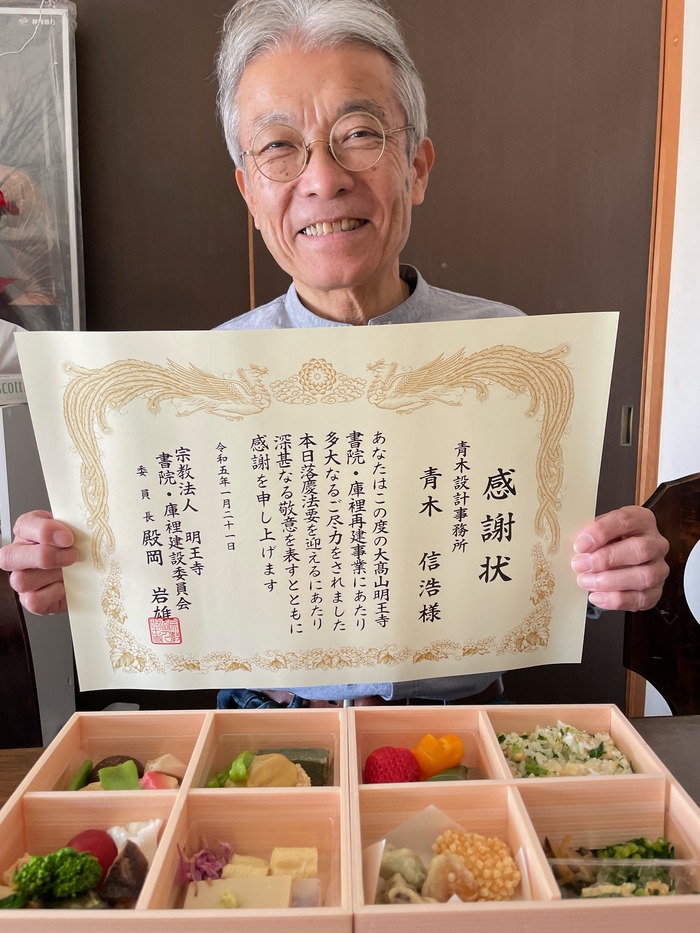 感謝状
青木設計事務所
青木 信浩様
あなたはこの度の大髙山明王寺
書院・庫裡再建事業にあたり
多大なるご尽力をされました
本日落慶法要を迎えるにあたり
深甚なる敬意を表すとともに
感謝を申し上げます
令和五年一月二十一日
宗教法人 明王寺
書院・庫裡建設委員会
委員長 殿岡 岩雄